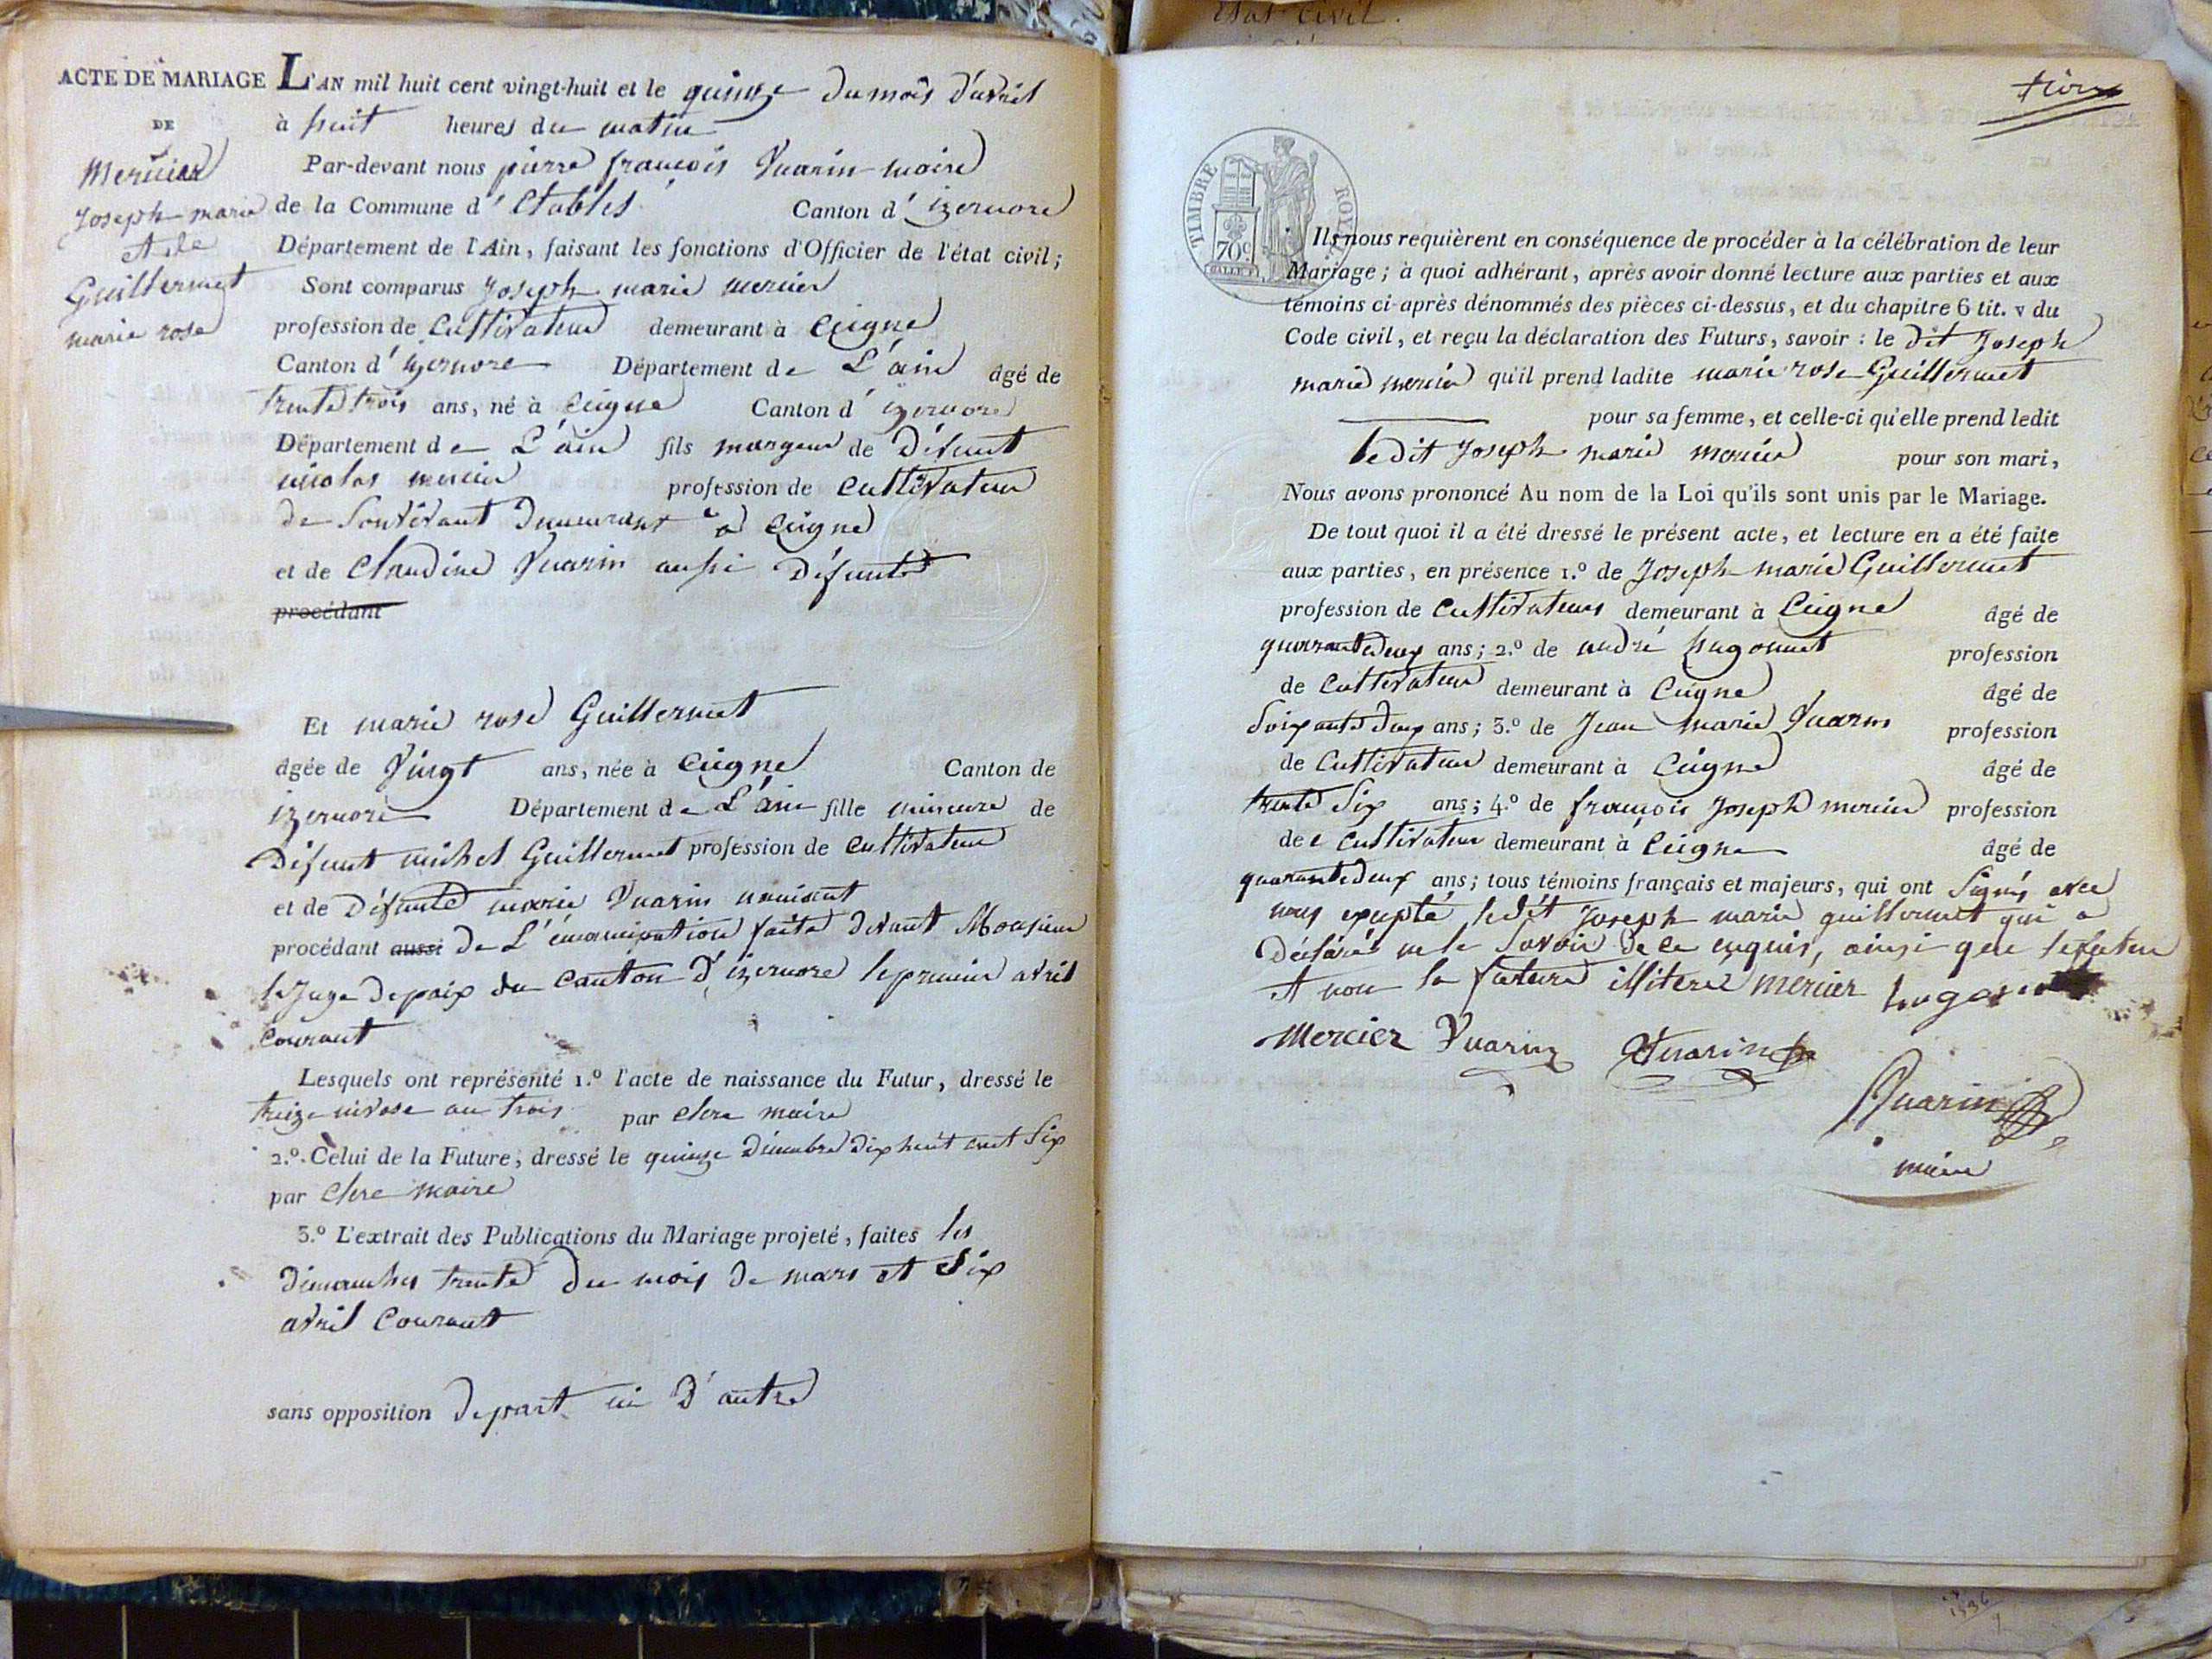 ACTE DE MARIAGE
DE
Mercier
Joseph marie
et de
Guillermet
marie rose
L'AN mil huit cent vingt-huit et le quinze du mois d'avril
à huit heures du matin
Par-devant nous pierre françois Vuarin maire
de la Commune d'Etables Canton d'izernore
Département de l'Ain, faisant les fonctions d'Officier de l'état civil;
Sont comparus Joseph marie mercier
profession de Cultivateur demeurant à Ceigne
Canton d'izernore Département de L'ain âgé de
trente trois ans, né à Ceigne Canton d'izernore
Département de L'ain fils margeur de Défunt
nicolas mercier profession de Cultivateur
de Sonvivant Demeurant à Ceigne
et de Claudine Vuarin aussi Défunte
procédant
Et marie rose Guillermet
âgée de Vingt ans, née à Ceigne Canton de
izernore Département de L'ain fille mineure de
Défunt michel Guillermet profession de Cultivateur
et de Défunte marie Vuarin
procédant aussi De L'émancipation faite devant Monsieur
le Juge de paix du Canton D'izernore le premier avril
Courant
Lesquels ont représenté 1.º l'acte de naissance du Futur, dressé le
treize nivose an trois par Clerc maire
2.º Celui de la Future, dressé le quinze Décembre Dix huit cent Six
par Clerc maire
3.º L'extrait des Publications du Mariage projeté, faites les
Dimanches trente du mois de mars et Six
avril Courant
sans opposition de part ni D'autre
TIMBRE ROYAL
70c
Ils nous requièrent en conséquence de procéder à la célébration de leur
Mariage; à quoi adhérant, après avoir donné lecture aux parties et aux
témoins ci-après dénommés des pièces ci-dessus, et du chapitre 6 tit. v du
Code civil, et reçu la déclaration des Futurs, savoir: le dit Joseph
marie mercier qu'il prend ladite marie rose Guillermet
pour sa femme, et celle-ci qu'elle prend ledit
ledit Joseph marie mercier pour son mari,
Nous avons prononcé Au nom de la Loi qu'ils sont unis par le Mariage.
De tout quoi il a été dressé le présent acte, et lecture en a été faite
aux parties, en présence 1.º de Joseph marie Guillermet
profession de Cultivateur demeurant à Ceigne âgé de
quarante deux ans; 2.º de andré hugonnet profession
de Cultivateur demeurant à Ceigne âgé de
Soixante deux ans; 3.º de Jean marie Vuarin profession
de Cultivateur demeurant à Ceigne âgé de
trente Six ans; 4.º de françois Joseph mercier profession
de Cultivateur demeurant à Ceigne âgé de
quarante deux ans; tous témoins français et majeurs, qui ont Signés avec
nous exepté ledit Joseph marie guillermet qui a
Déclaré ne le Savoir de ce enquis, ainsi que le futur
et non la future illiteré mercier
Mercier Vuarin Vuarin
Vuarin
maire